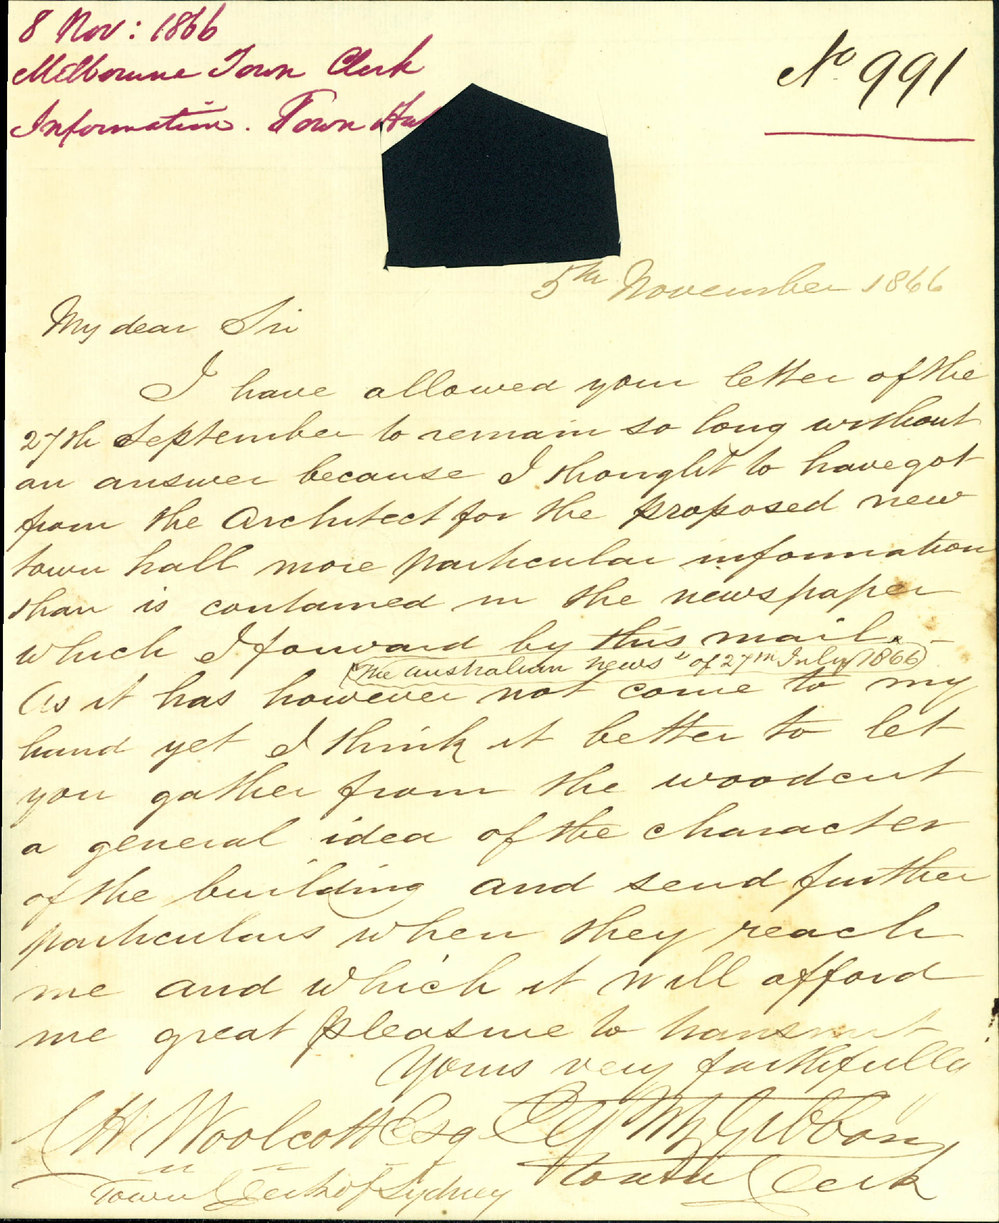 8 Nov: 1866
Melbourne Town Clerk
Information. Town Hal
No 991
5th November 1866
My dear Sir
I have allowed your letter of the
27th September to remain so long without
an answer because I thought to have got
from the Architect for the proposed new
town hall more particular information
than is contained in the newspaper
which I forward by this mail.
(The Australian news" of 27th July 1866)
As it has however not come to my
hand yet I think it better to let
you gather from the woodcut
a general idea of the character
of the building and send further
particulars when they reach
me and which it will afford
me great pleasure to transmit
Yours very faithfully
CH Woolcott Esq
EG FitzGibbon
Town Clerk of Sydney
Town Clerk